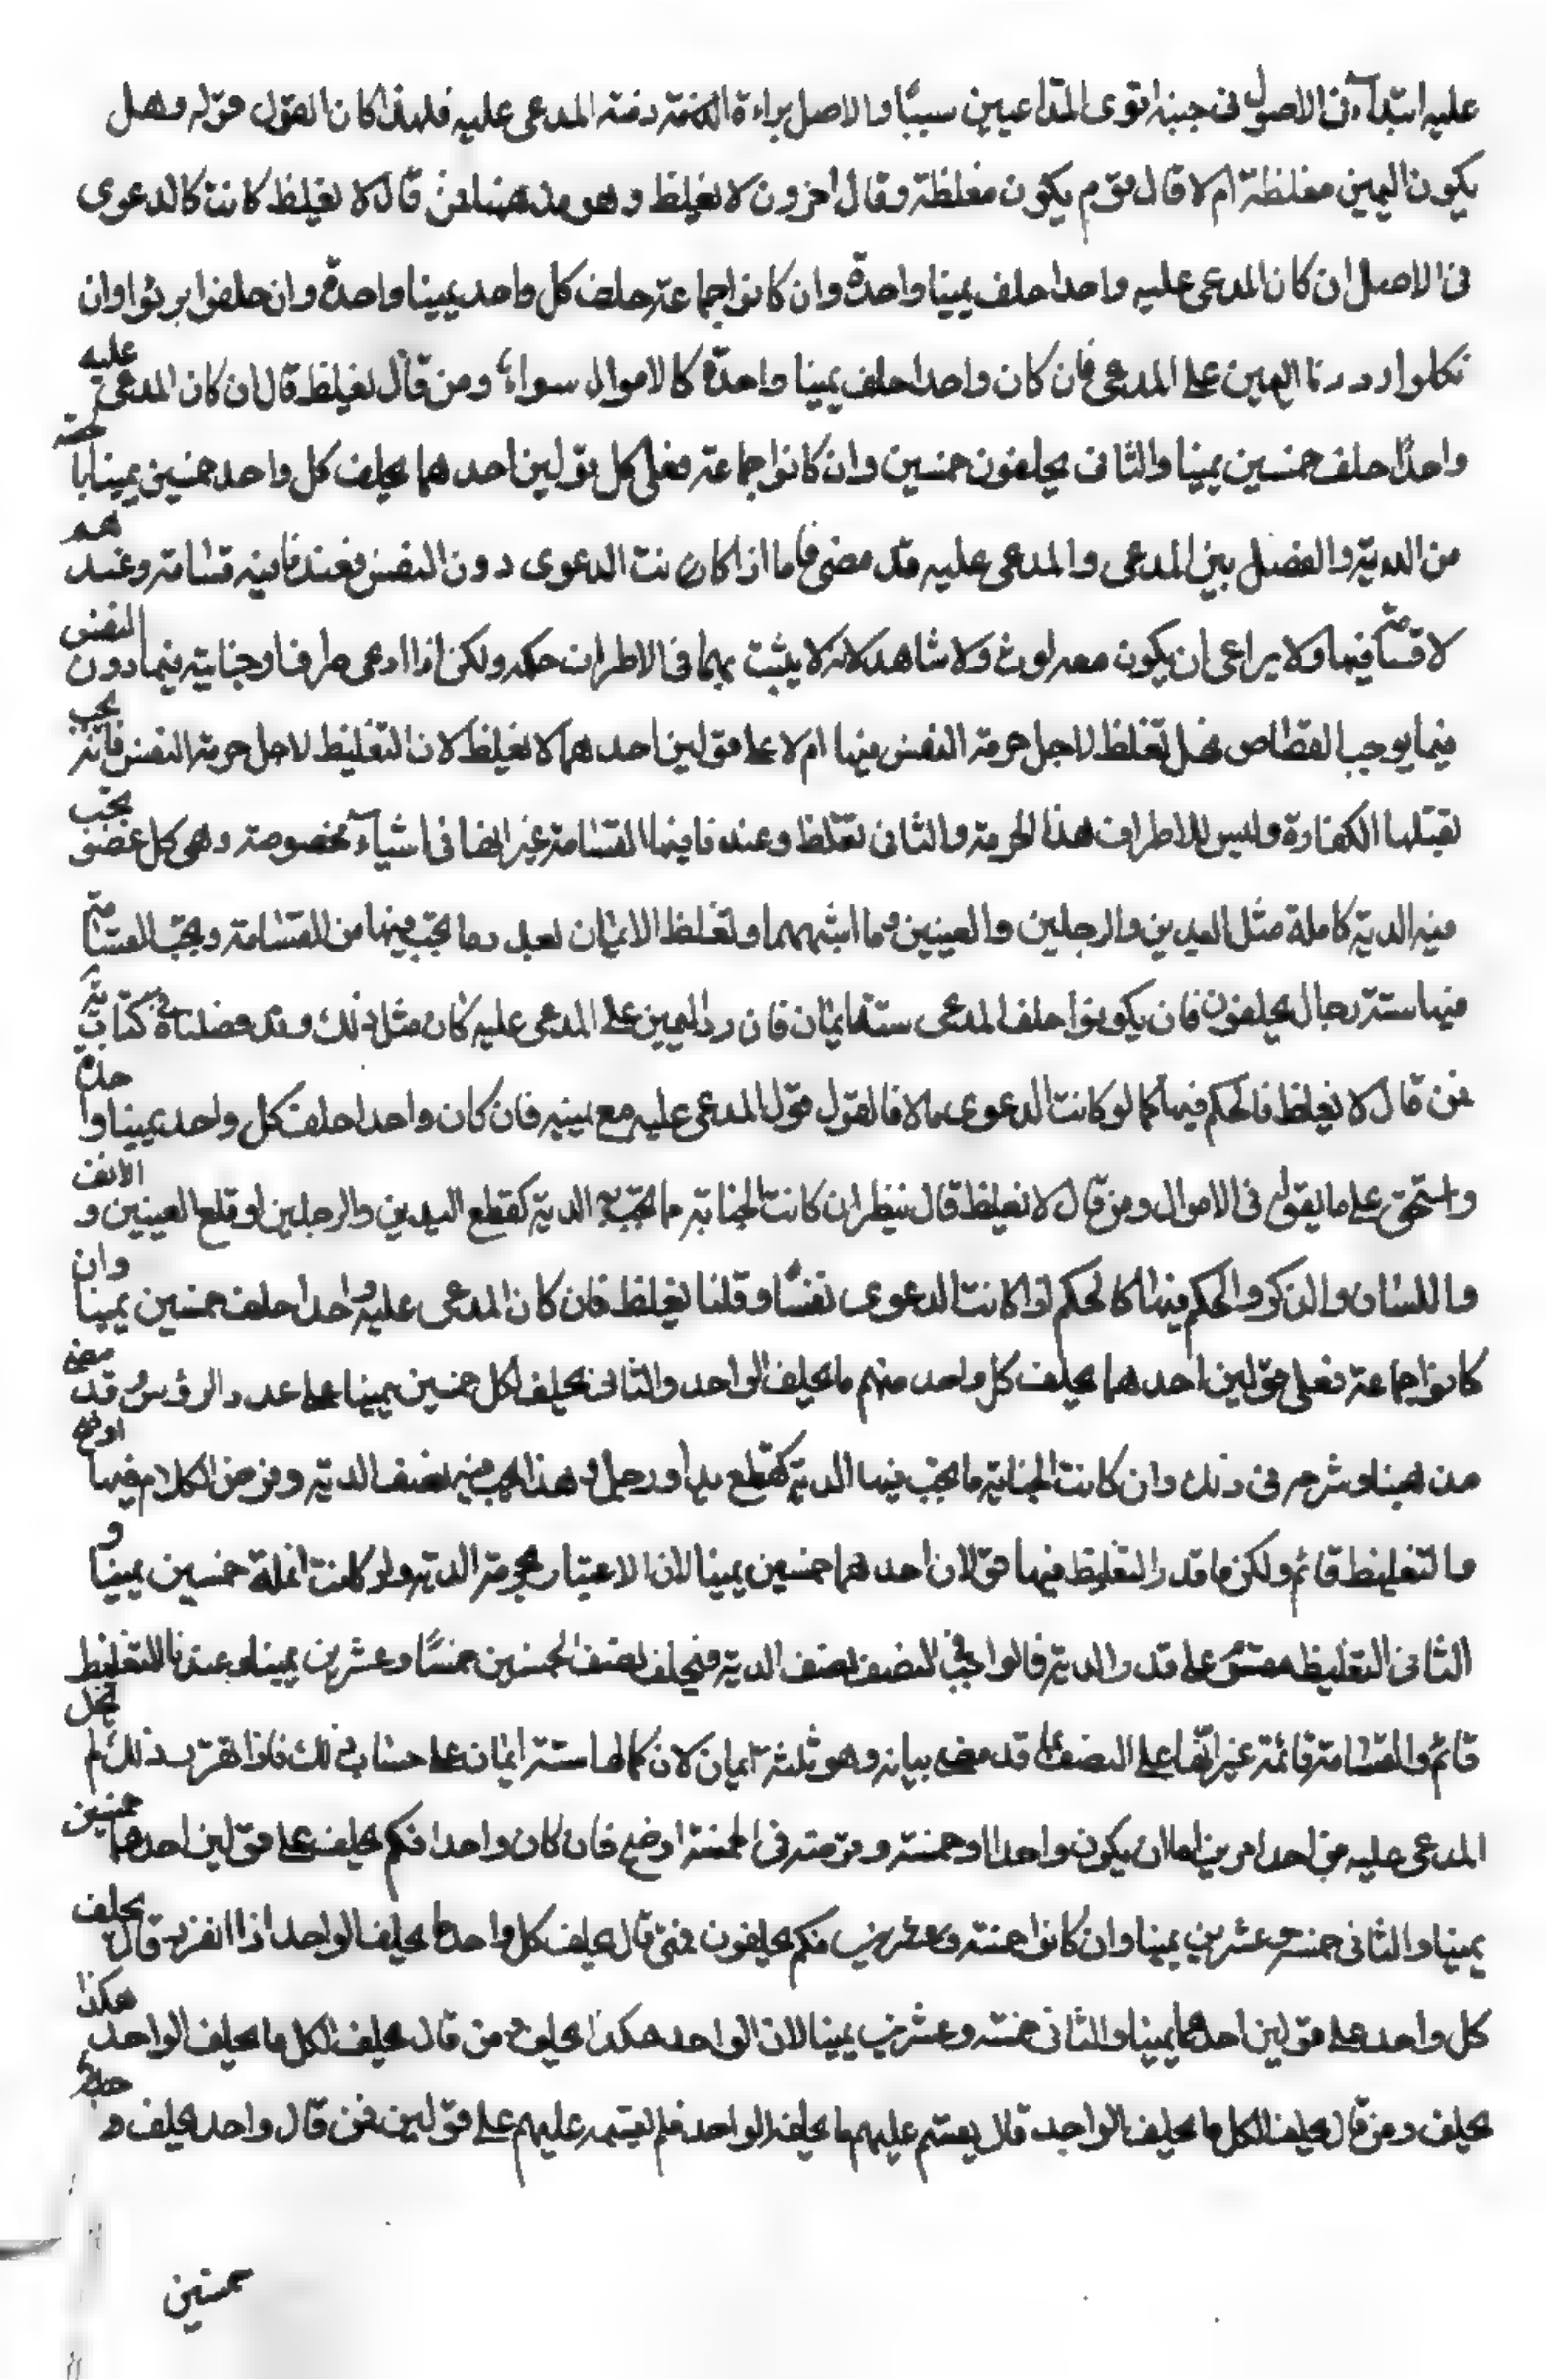 عليه ابتداء في الاصول في جنبة اقوى المتداعيين سببًا والاصل براءة الذمة ذمة المدعى عليه فلهذا كان القول قوله وهل
يكون اليمين مغلظة ام لا قال قوم يكون مغلظة وقال اخرون لا تغليظ وهو مذهبنا فمن قال لا تغليظ كانت كالدعوى
في الاصل ان كان المدعى عليه واحدا حلف يمينا واحدة وان كانوا جماعة حلف كل واحد يمينا واحدة وان حلفوا برئوا وان
نكلوا رددنا اليمين على المدعي فان كان واحدا حلف يمينا واحدة كالاموال سواء ومن قال تغليظ قال ان كان المدعى عليه
واحدًا حلف خمسين يمينا والثاني يحلفون خمسين وان كانوا جماعة فعلى كل قولين احدهما يحلف كل واحد خمسين يمينا با حصته
من الدية والفضل بين المدعي والمدعى عليه قد مضى فاما اذا كانت الدعوى دون النفس فعندنا فيه قسامة وعند هم
لا قسامة فيها ولا يراعى ان يكون معه لوث ولا شاهد لانه لا يثبت بهما في الاطراف حكمه ولكن اذا ادعى طرفا وجناية فيما دون النفس
فيما يوجب القصاص فهل تغلظ لاجل حرمة النفس فيها ام لا على قولين احدهما لا تغليظ لان التغليظ لاجل حرمة النفس فانه يجب
بقتلها الكفارة وليس للاطراف هذه الحرمة والثاني تغلظ وعندنا فيها القسامة غير انها في اشياء مخصوصة وهي كل عضو يجب
فيه الدية كاملة مثل اليدين والرجلين والعينين وما اشبههما وتغلظ الايمان بعدد ما يجب فيها من القسامة ويجب القسامة
فيها ستة رجال يحلفون فان يكونوا حلف المدعي ستة ايمان فان رد اليمين على المدعى عليه كان مثل ذلك وقد فصلناه في كتاب يه
فمن قال لا تغليظ فالحكم فيها كما لو كانت الدعوى مالا فالقول قول المدعى عليه مع يمينه فان كان واحدا حلف كل واحد يمينا وا حدة
واستحق على ما يقوله في الاموال ومن قال لا تغليظ قال ننظر ان كانت الجناية ما يجب فيه الدية كقطع اليدين والرجلين او قلع العينين و الانف
واللسان والذكر والحكم فيها كالحكم اذا كانت الدعوى نفسًا وقلنا تغليظ فان كان المدعى عليه واحدا حلف خمسين يمينا وان
كانوا جماعة فعلى قولين احدهما يحلف كل واحد منهم ما يحلف الواحد والثاني يحلف الكل خمسين يمينا على عدد الرؤس وقد مضى
مذهبنا وشرحه في ذلك وان كانت الجناية ما يجب فيها الدية كقطع يد او رجل فهذا يجب فيه نصف الدية وفرض الكلام فيها اوضح
والتغليظ قائم ولكن ما قدر التغليظ فيها قولان احدهما خمسين يمينا لان الاعتبار بحرمة الدية ولو كانت انملة خمسين يمينا و
الثاني التغليظ مقسم على قدر الدية فالواجب في النصف نصف الدية فيحلف نصف الخمسين خمسًا وعشرين يمينا وعندنا التغليظ
قائم والقسامة قائمة غير انها على النصف كما قد مضى بيانه وهو ثلثة ايمان لان كمالها ستة ايمان على حساب ذلك فاذا تقرر ذلك لم يخل
المدعى عليه من احد امرين اما ان يكون واحدا او خمسة وفرضه في الخمسة اوضح فان كان واحدا فكم يحلف على قولين احدهما خمسين
يمينا والثاني خمسة وعشرين يمينا وان كانوا خمسة وعشرين فكم يحلفون فمن قال يحلف كل واحد ما يحلف الواحد اذا انفرد قال يحلف
كل واحد على قولين احدهما يمينا والثاني خمسة وعشرين يمينا لان الواحد هكذا يحلف ومن قال يحلف الكل ما يحلف الواحد هكذا
يحلف ومن قال يحلف الكل ما يحلف الواحد قال يقسم عليهم ما يحلف الواحد فلم يقسمه عليهم على قولين فمن قال واحد يحلف و حدة
خمسين